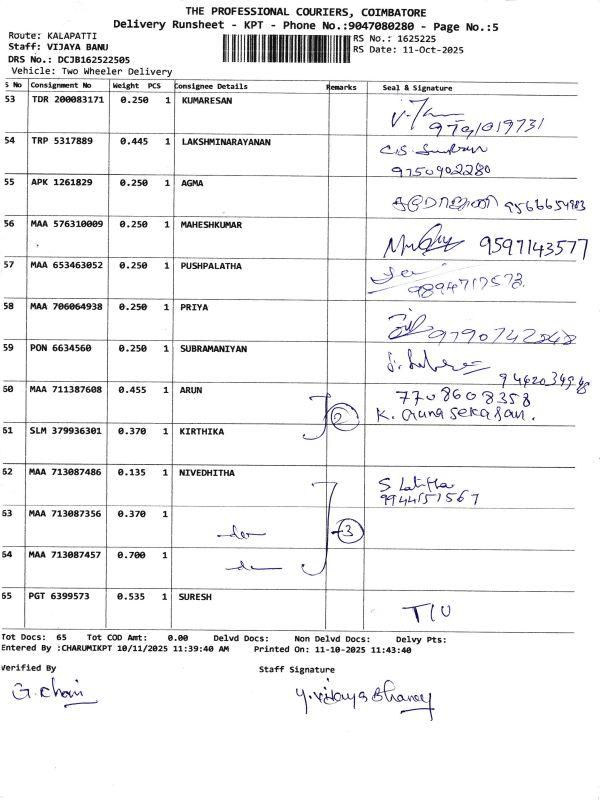 THE PROFESSIONAL COURIERS, COIMBATORE
Delivery Runsheet - KPT - Phone No.:9047080280 - Page No.:5
Route: KALAPATTI
RS No.: 1625225
Staff: VIJAYA BANU
RS Date: 11-Oct-2025
DRS No.: DCJB162522505
Vehicle: Two Wheeler Delivery
S No Consignment No Weight PCS Consignee Details Remarks Seal & Signature
53 TDR 200083171 0.250 1 KUMARESAN
9791019731
54 TRP 5317889 0.445 1 LAKSHMINARAYANAN
9750902280
55 APK 1261829 0.250 1 AGMA
56 MAA 576310009 0.250 1 MAHESHKUMAR
9597143577
57 MAA 653463052 0.250 1 PUSHPALATHA
58 MAA 706064938 0.250 1 PRIYA
59 PON 6634560 0.250 1 SUBRAMANIYAN
60 MAA 711387608 0.455 1 ARUN
7708608358
K. Gunasekaran.
2
61 SLM 379936301 0.370 1 KIRTHIKA
62 MAA 713087486 0.135 1 NIVEDHITHA
S Latitha
9944151567
63 MAA 713087356 0.370 1
3
64 MAA 713087457 0.700 1
65 PGT 6399573 0.535 1 SURESH
Tot Docs: 65 Tot COD Amt: 0.00 Delvd Docs: Non Delvd Docs: Delvy Pts:
Entered By :CHARUMIKPT 10/11/2025 11:39:40 AM Printed On: 11-10-2025 11:43:40
Verified By Staff Signature
Y. Vijaya Bhanoy